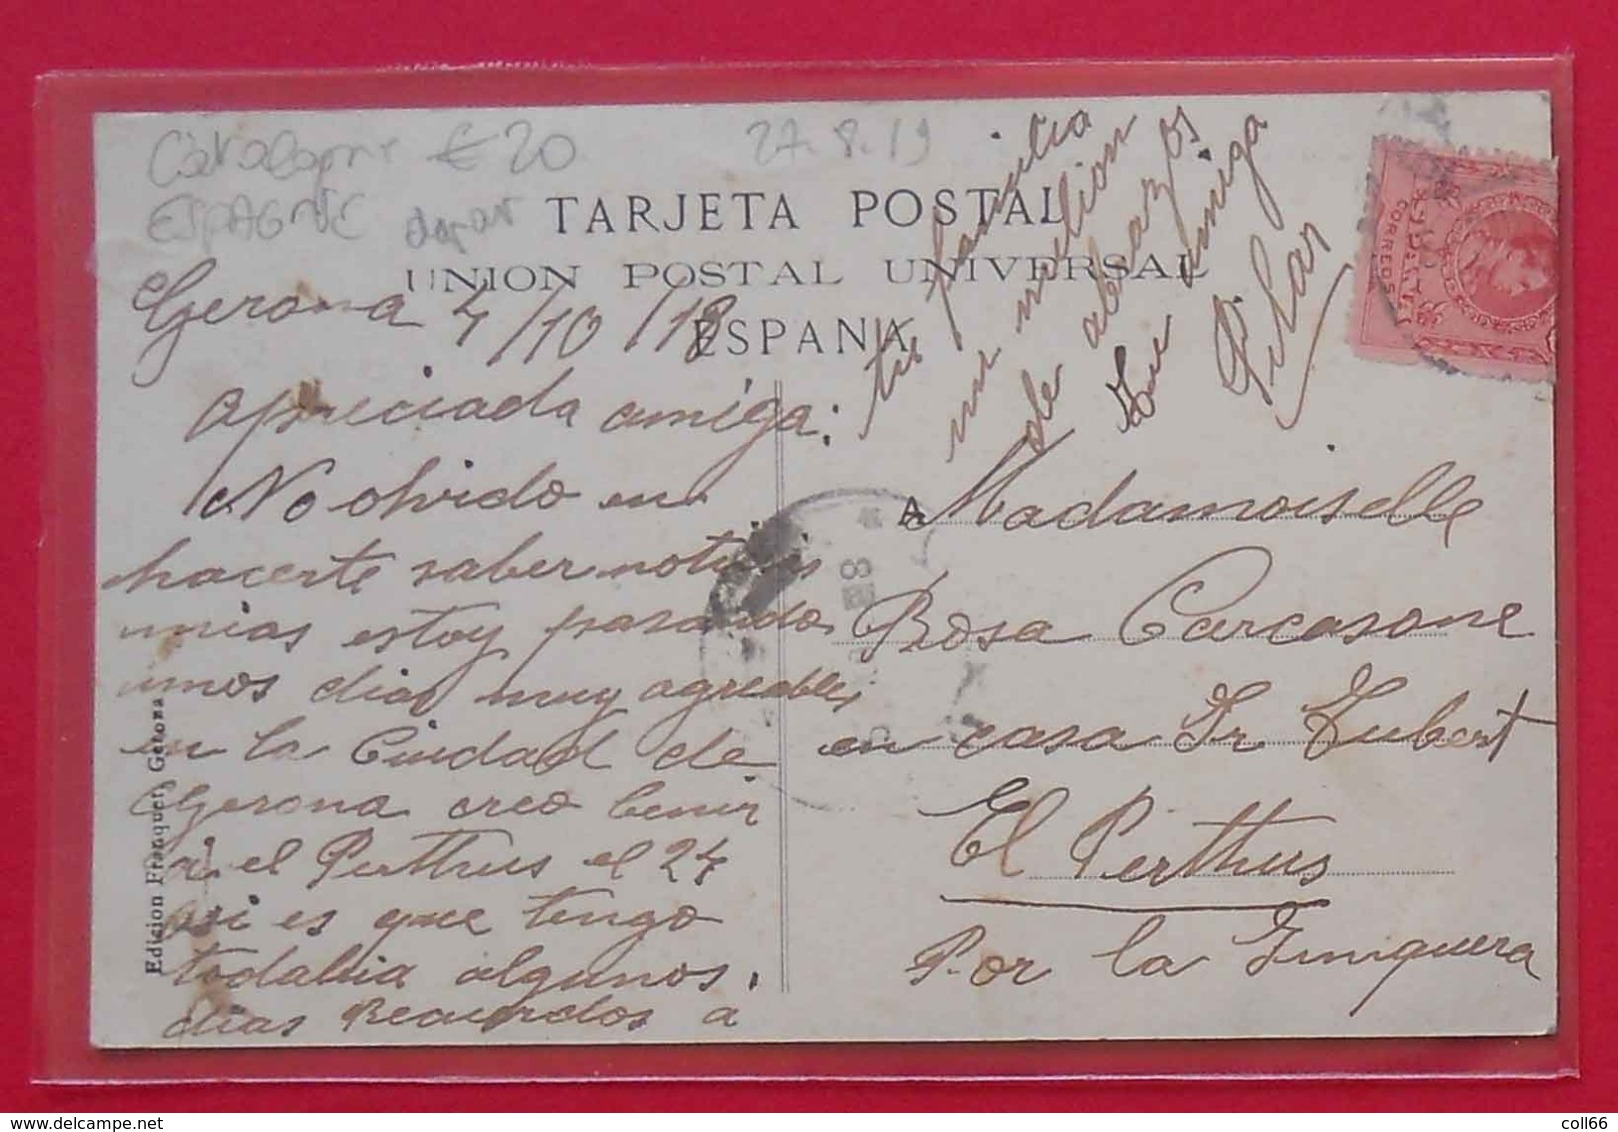 € 20
27.8.19
ESPAGNE
TARJETA POSTAL
UNION POSTAL UNIVERSAL
ESPAÑA
CORREOS
Gerona 4/10/18
Apreciada amiga:
No olvido en
hacerte saber noticias
mias estoy pasando
unos dias muy agreables
en la Ciudad de
Gerona creo benir
a el Perthus el 24
asi es que tengo
todabia algunos.
dias Recuerdos a
tu familia
un milion
de abrazos
tu amiga
Pilar
A Madamoiselle
Rosa Carcasone
en casa Sr Tubert
El Perthus
Por la Junquera
Edicion Franquet, Gerona
coll66